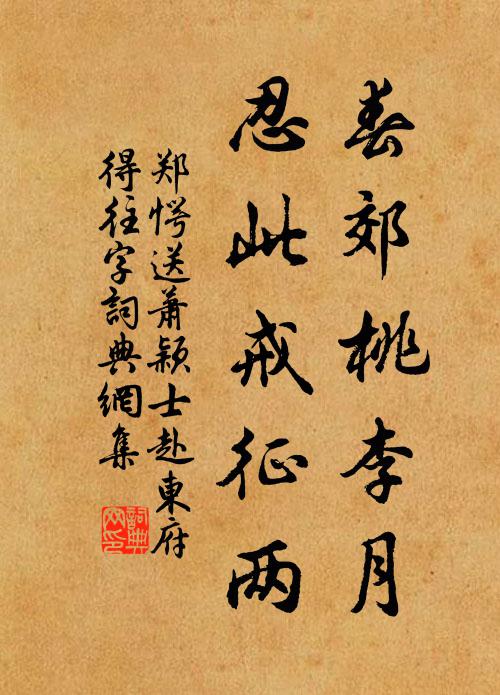 春郊桃李月
忍此戒征两
郑愕送萧颖士赴東府
得往字詞典網集
詞典网印